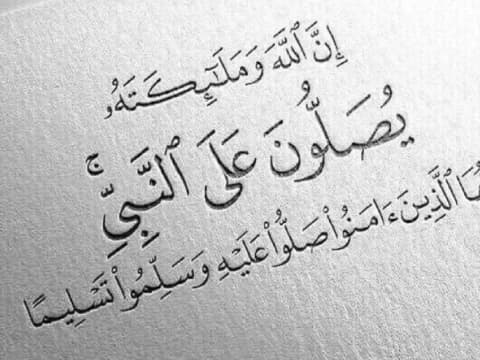 إِنَّ ٱللَّهَ وَمَلَٰٓئِكَتَهُۥ
يُصَلُّونَ عَلَى ٱلنَّبِىِّ ۚ
ٱلَّذِينَ ءَامَنُوا۟ صَلُّوا۟ عَلَيْهِ وَسَلِّمُوا۟ تَسْلِيمًا